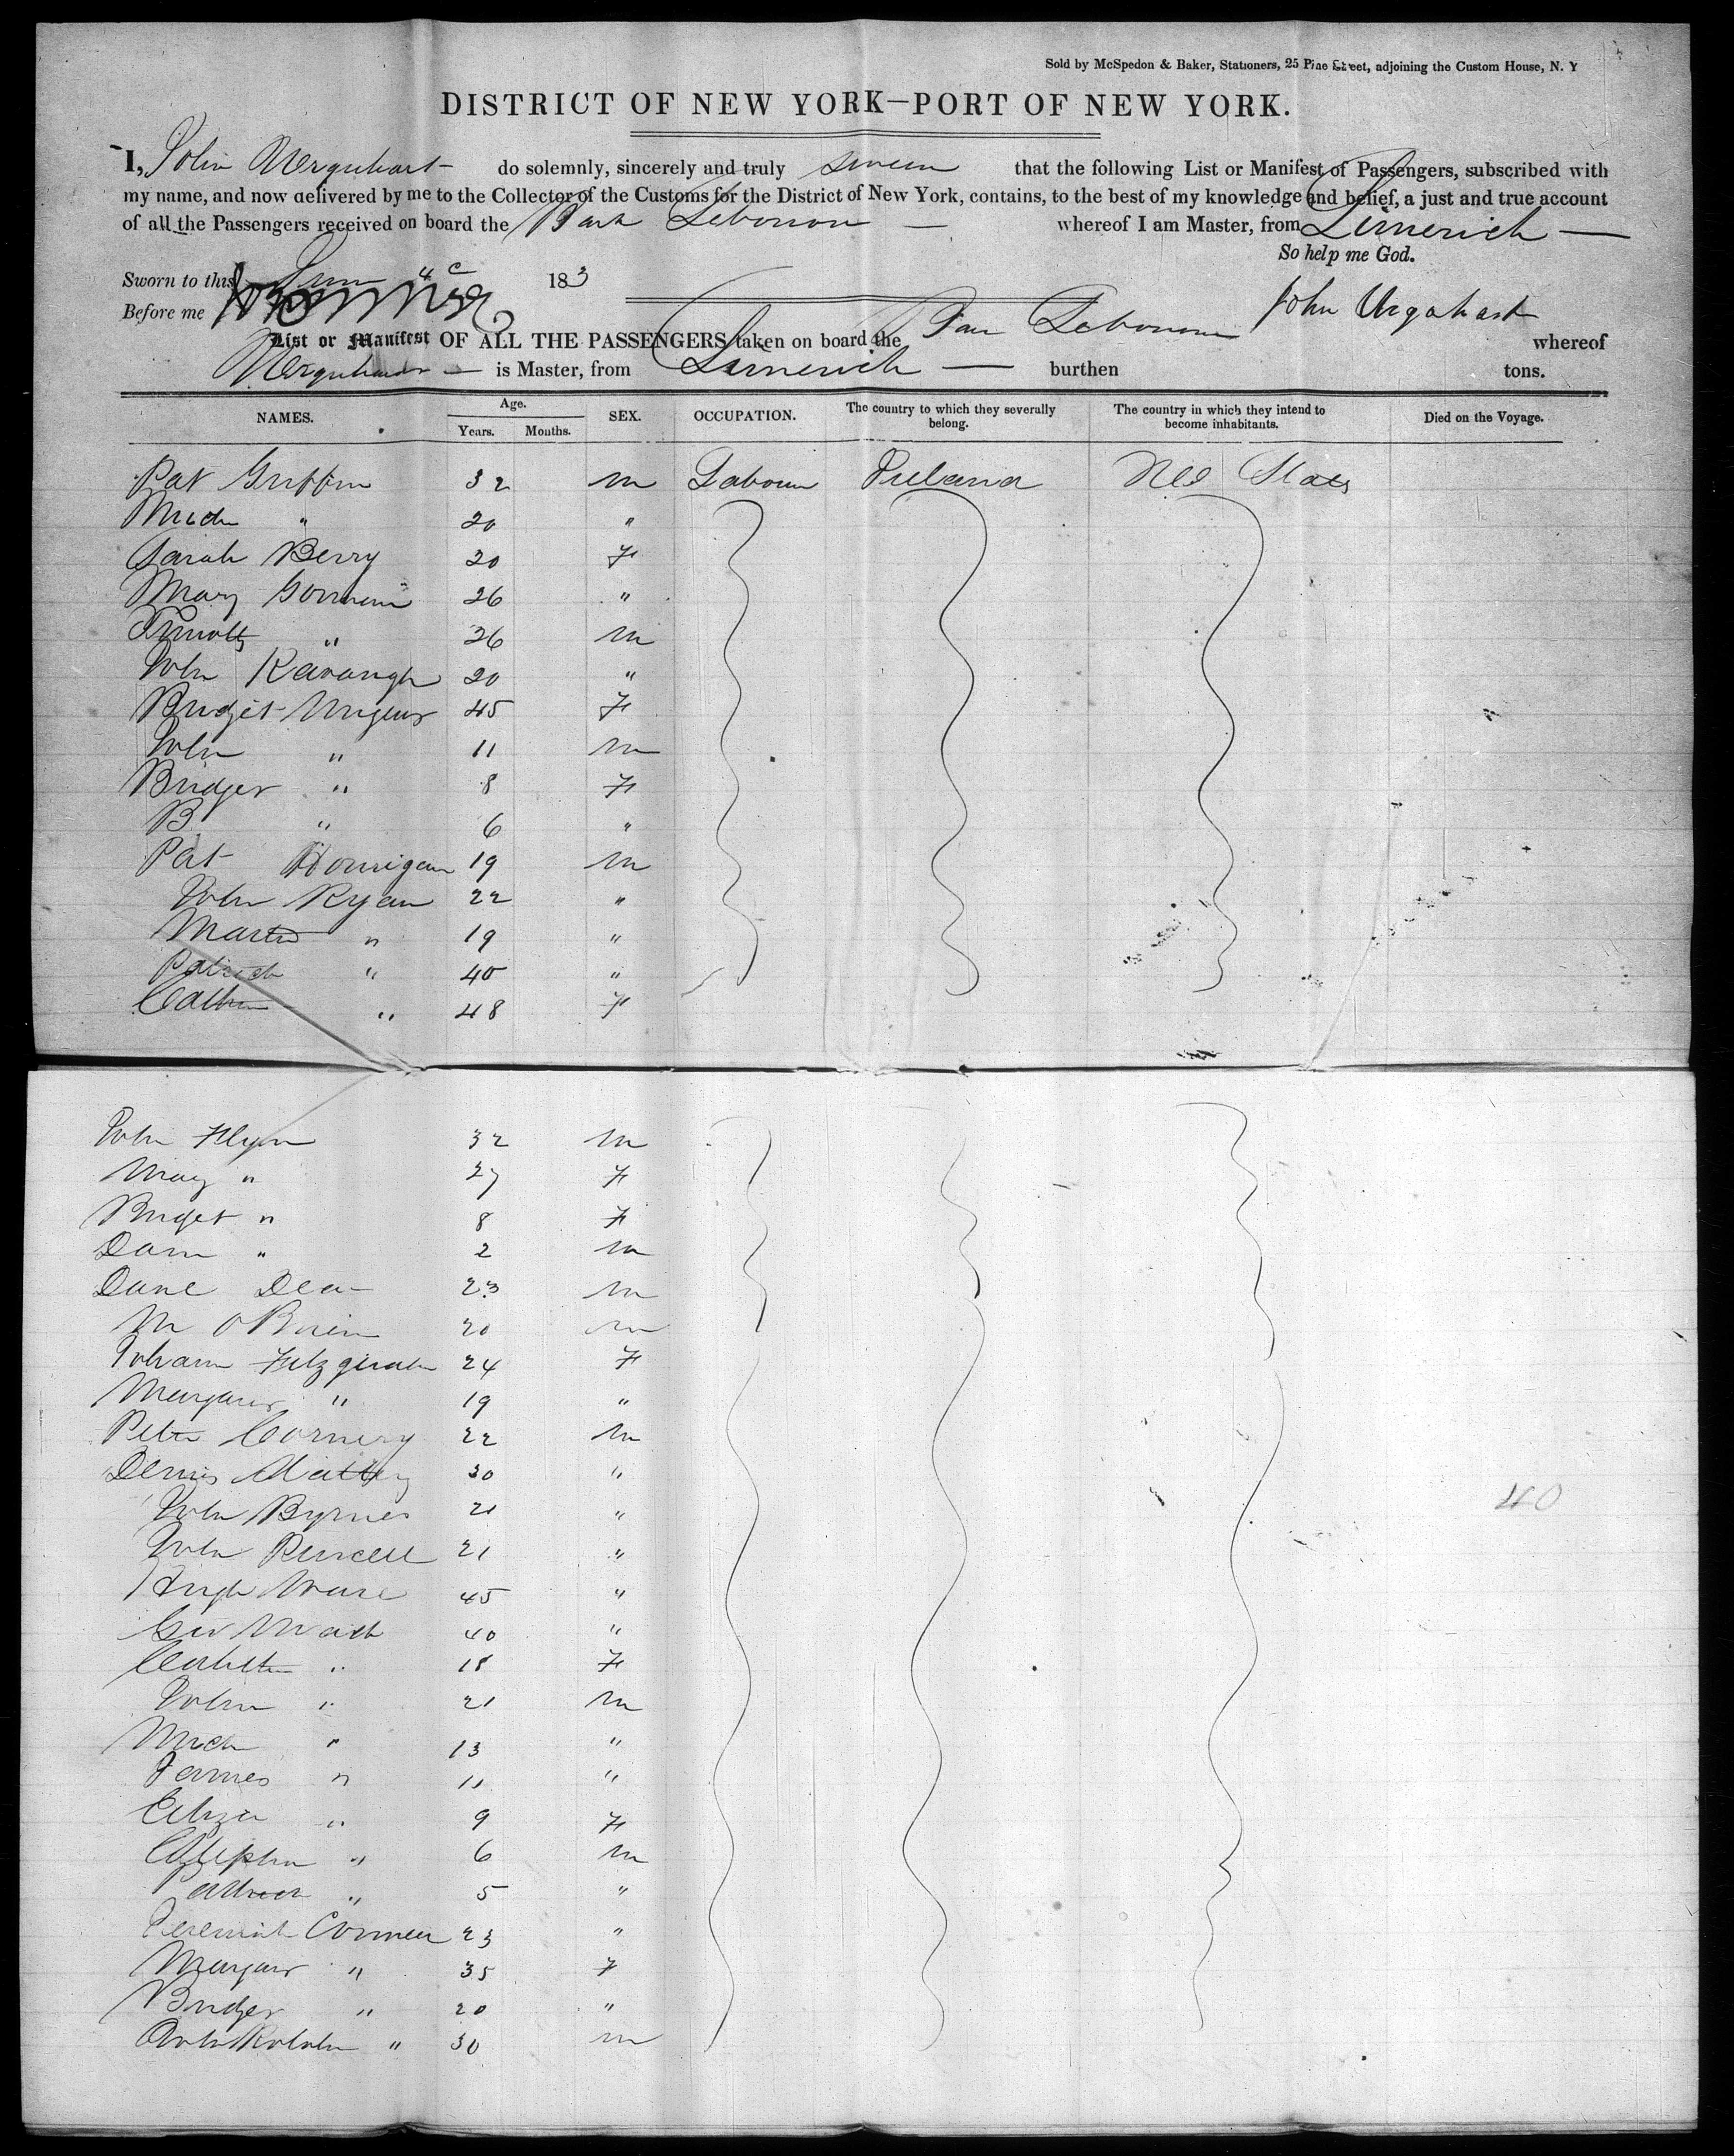 Sold by McSpedon & Baker, Stationers, 25 Pine Street, adjoining the Custom House, N. Y
DISTRICT OF NEW YORK—PORT OF NEW YORK.
I, John Urquhart do solemnly, sincerely and truly swear that the following List or Manifest of Passengers, subscribed with
my name, and now delivered by me to the Collector of the Customs for the District of New York, contains, to the best of my knowledge and belief, a just and true account
of all the Passengers received on board the Bark Lebonon whereof I am Master, from Limerick
So help me God.
Sworn to this June 4 183
Before me
John Urquhart
List or Manifest OF ALL THE PASSENGERS taken on board the Lebonon whereof
Urquhart is Master, from Limerick burthen tons.
NAMES. Age. Years. Months. SEX. OCCUPATION. The country to which they severally belong. The country in which they intend to become inhabitants. Died on the Voyage.
Pat Griffin 32 m Labourer Ireland States
Mich " 20 "
Sarah Berry 20 F
Mary 26 "
Timothy " 26 m
John Kavangh 20 "
Bridget 45 F
John " 11 m
Bridget " 8 F
B " 6 "
Pat Hourigan 19 m
John Ryan 22 "
Martin " 19 "
Patrick " 40 "
Cathn " 48 F
John Flynn 32 m
Mary " 27 F
Bridget " 8 F
Dann " 2 m
23 m
M OBrien 20 m
Fitzgerald 24 F
Margaret " 19 "
Peter Cornery 22 m
Dennis Slattery 30 "
John Byrnes 21 "
John Purcell 21 "
Hugh 45 "
40 "
18 F
John " 21 m
Mich " 13 "
James " 11 "
Eliza " 9 F
Stephen " 6 m
Patrick " 5 "
Jeremiah 23 "
Margaret " 35 F
Bridget " 20 "
" 30 m
40